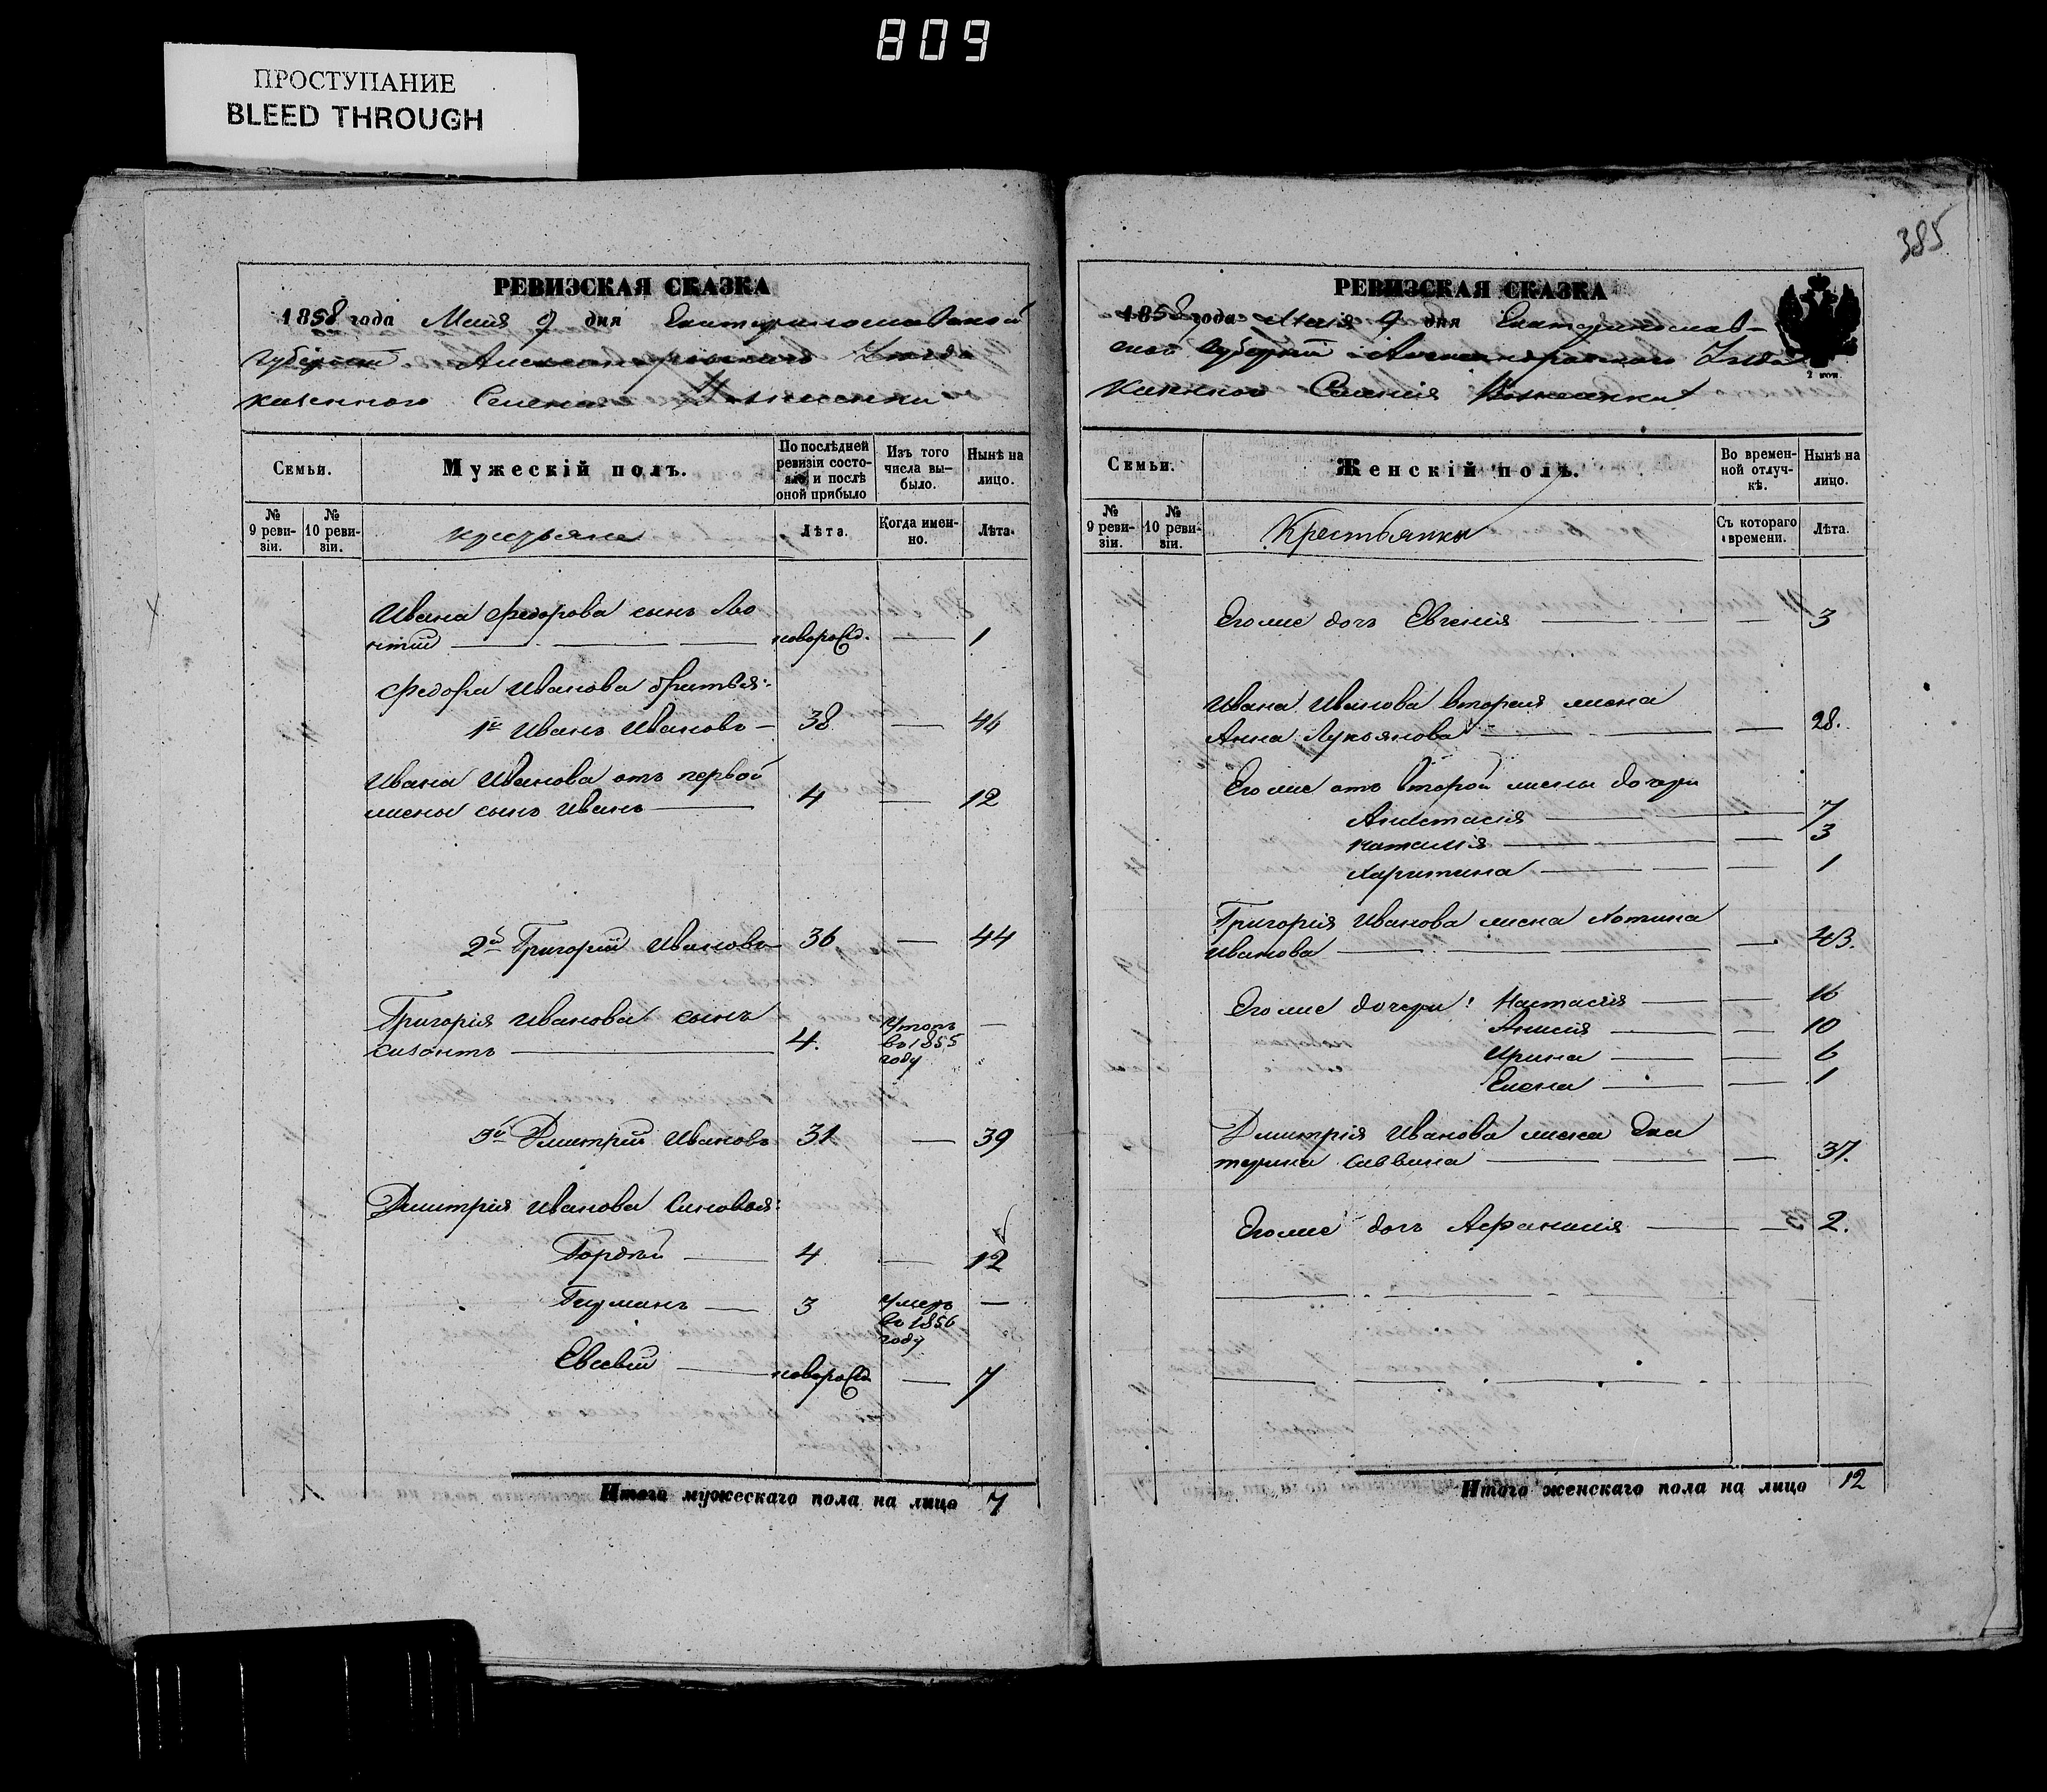 809
ПРОСТУПАНИЕ
BLEED THROUGH
385
РЕВИЗСКАЯ СКАЗКА
1858 года Маия 9 дня Екатеринославской
Губернии Александровского Уезда
казенного Селения
Семьи.
Мужескій полъ.
По послѣдней ревизіи состояло, и послѣ оной прибыло
Изъ того числа выбыло.
Нынѣ на лицо.
№ 9 ревизіи.
№ 10 ревизіи.
крестьяне
Лѣта.
Когда именно.
Лѣта.
Ивана Федорова сынъ Ле
нтій — новорожд. — 1
Федора Иванова братья:
1й Иванъ Ивановъ — 38 — 46
Ивана Иванова отъ первой
жены сынъ Иванъ — 4 — 12
2й Григорій Ивановъ — 36 — 44
Григорія Иванова сынъ
Ксизонтъ — 4. Утопъ въ 1855 году —
3й Дмитрій Ивановъ 31 — 39
Дмитрія Иванова Сыновья:
Гордѣй — 4 — 12
Германъ — 3 Умеръ въ 1856 году —
Евсевій — новорожд — 7
Итого мужескаго пола на лицо 7
РЕВИЗСКАЯ СКАЗКА
1858 года Маія 9 дня Екатеринослав-
ской Губерніи Александровского Уезда
казенного Селенія
2 коп
Семьи.
Женскій полъ.
Во временной отлучкѣ.
Нынѣ на лицо.
№ 9 ревизіи.
№ 10 ревизіи.
Крестьянки
Съ котораго времени.
Лѣта.
Его же дочь Евгенія — — 3
Ивана Иванова вторая жена
Анна Лукьянова — — 28.
Его же отъ второй жены дочери
Анастасія — 7
Наталія — — 3
Харитина — — 1
Григорія Иванова жена Хотина
Иванова — — 43.
Его же дочери: Настасія — — 16
Анисія — — 10
Ирина — — 6
Елена — — 1
Дмитрія Иванова жена Ека
терина Саввина — — 37.
Его же дочь Афанасія — — 2.
Итого женскаго пола на лицо 12